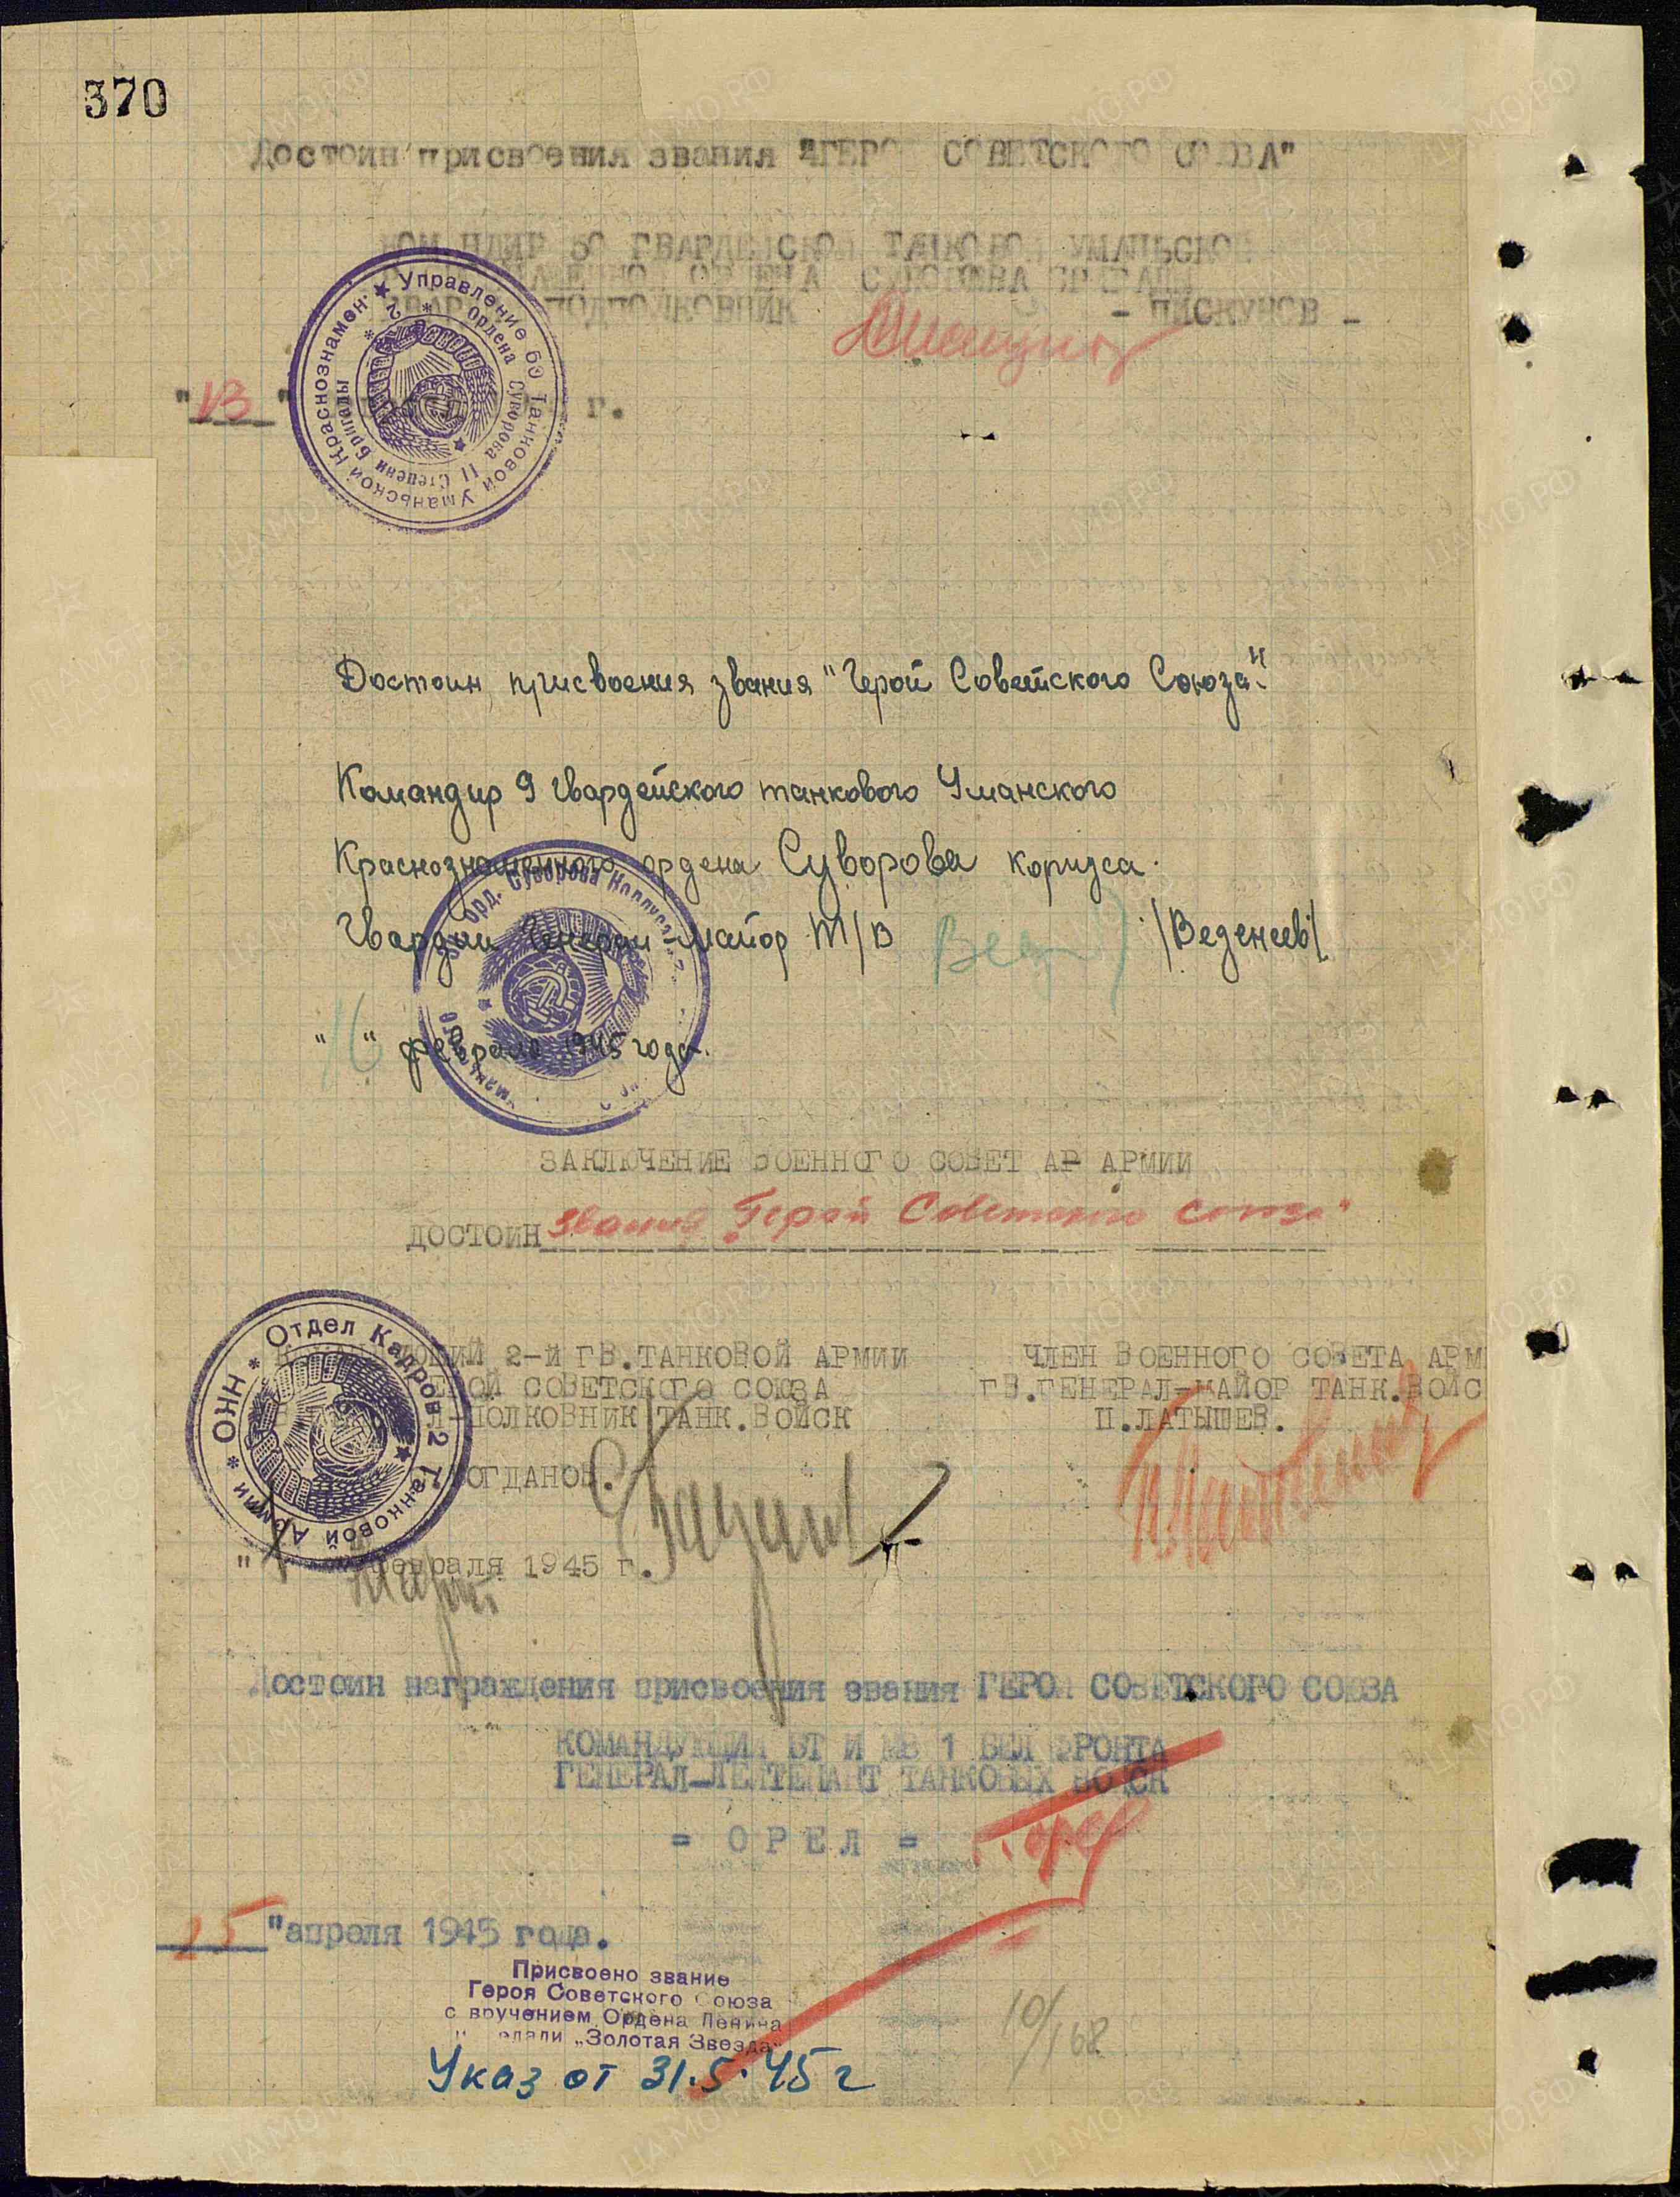 370
Достоин присвоения звания "ГЕРОЙ СОВЕТСКОГО СОЮЗА"
КОМАНДИР 50 ГВАРДЕЙСКОЙ ТАНКОВОЙ УМАНЬСКОЙ
ОРДЕНА СУВОРОВА БРИГАДЫ
ПОДПОЛКОВНИК - ПИСКУНОВ -
"13" г.
Управление 50 Танковой Уманьской Краснознамен.
Ордена Суворова II Степени Бригады
Достоин присвоения звания "Герой Советского Союза".
Командир 9 Гвардейского танкового Уманского
Краснознаменного ордена Суворова корпуса.
Гвардии Генерал-майор т/в /Веденеев/
"16" февраля 1945 года.
Орд. Суворова Корпуса
ЗАКЛЮЧЕНИЕ ВОЕННОГО СОВЕТ АР АРМИИ
ДОСТОИН звания "Герой Советского Союза"
2-й ГВ.ТАНКОВОЙ АРМИИ ЧЛЕН ВОЕННОГО СОВЕТА АРМ
СОВЕТСКОГО СОЮЗА ГВ.ГЕНЕРАЛ-МАЙОР ТАНК.ВОЙС
Л-ПОЛКОВНИК ТАНК.ВОЙСК П.ЛАТЫШЕВ.
ОГДАНОВ.
НКО * Отдел Кадров 2 Танковой Армии *
" февраля 1945 г.
Достоин награждения присвоения звания ГЕРОЯ СОВЕТСКОГО СОЮЗА
КОМАНДУЮЩИЙ БТ И МВ 1 БЕЛ ФРОНТА
ГЕНЕРАЛ-ЛЕЙТЕНАНТ ТАНКОВЫХ ВОЙСК
= ОРЕЛ =
15 "апреля 1945 года.
Присвоено звание
Героя Советского Союза
с вручением Ордена Ленина
и медали „Золотая Звезда"
Указ от 31.5.45 г
10/168